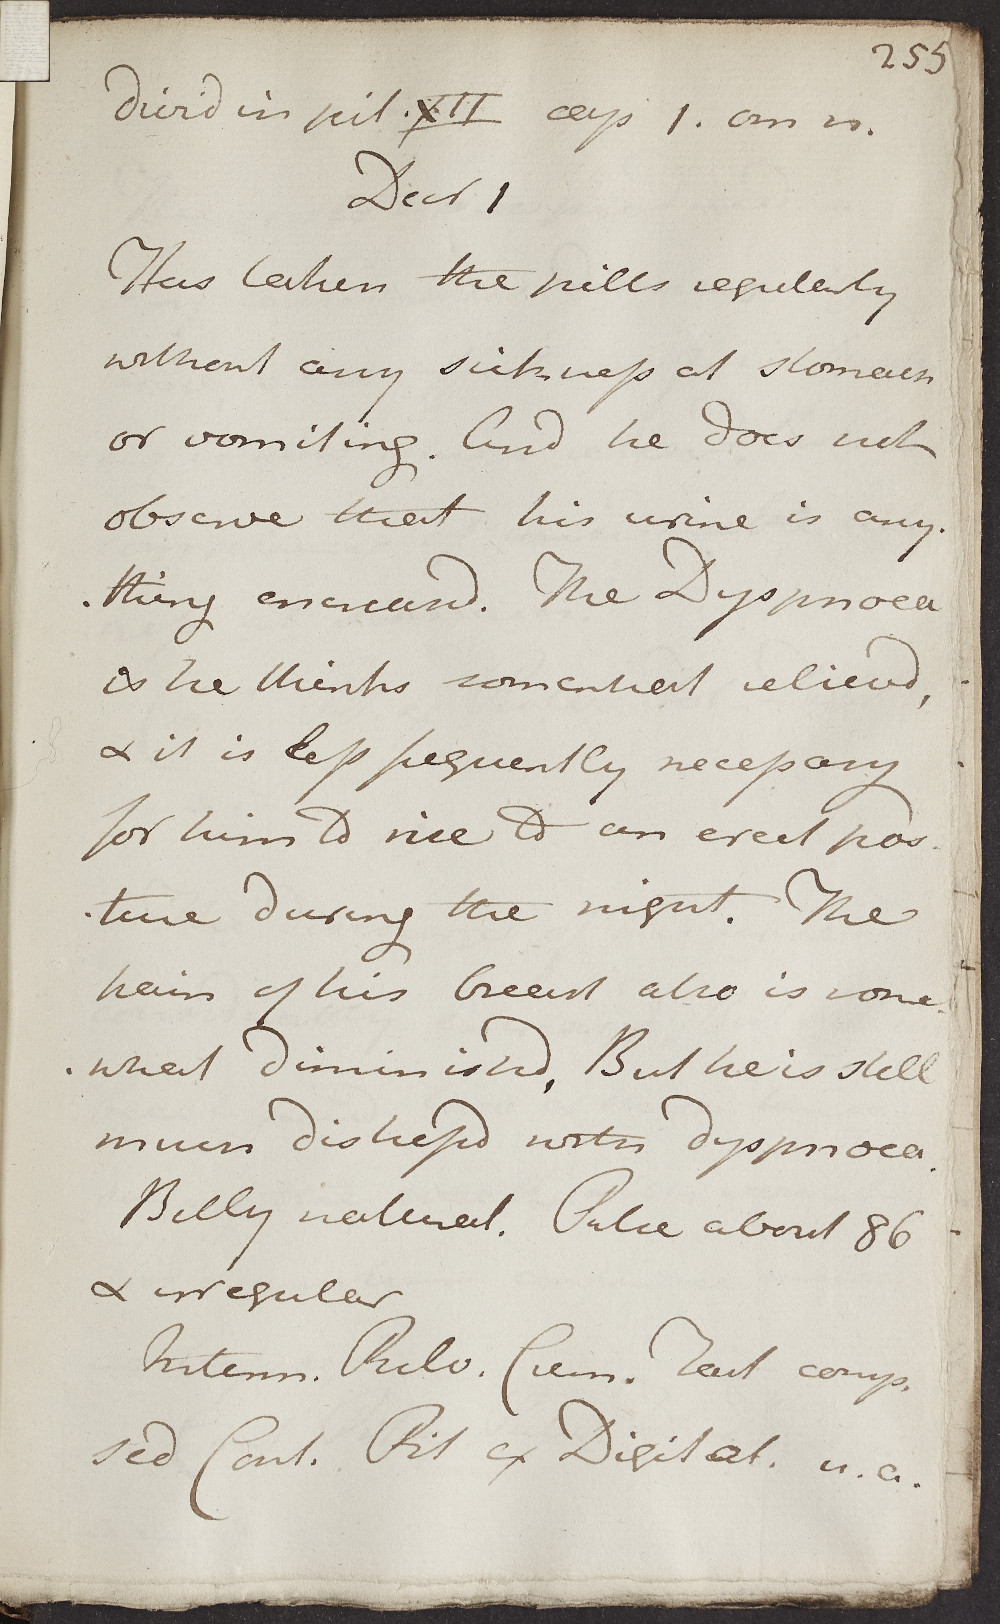 255
divid in pil. XII cap 1. om n.
Decr 1
Has taken the pills regularly
without any sickness at stomach
or vomiting. And he does not
observe that his urine is any-
-thing encreased. The Dyspnoea
is he thinks somewhat relieved,
& it is less frequently necessary
for him to rise to an erect pos-
-ture during the night. The
pain of his breast also is some-
-what diminishd, But he is still
much distressd with dyspnoea.
Belly natural. Pulse about 86
& irregular
Interm. Pulv. Crem. Tart comp.
sed Cont. Pil ex Digital. u.a.